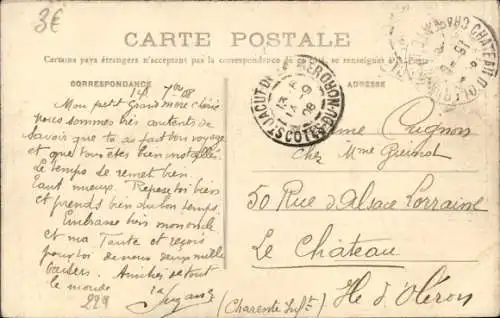 3€
CARTE POSTALE
Certains pays étrangers n'acceptent pas la correspondance de ce côté, se renseigner à la Poste
CORRESPONDANCE
ADRESSE
14 7bre 08
Mon petit Grand mère chérie
Nous sommes bien contents de
savoir que tu as fait bon voyage
et que vous êtes bien installés
Le temps se remet bien
tant mieux. Repose toi bien
et prends bien du bon temps.
Embrasse bien mon oncle
et ma Tante et reçois
pour toi de nous deux mille
baisers. Amitiés à tout
le monde
ta Suzanne
229
ST JACUT DE LA MER
CÔTES-DU-NORD
08
CHATEAU D'OLERON
Mme Cugnon
Chez Mme
50 Rue d'Alsace Lorraine
Le Château
(Charente Infre) Ile d'Oléron